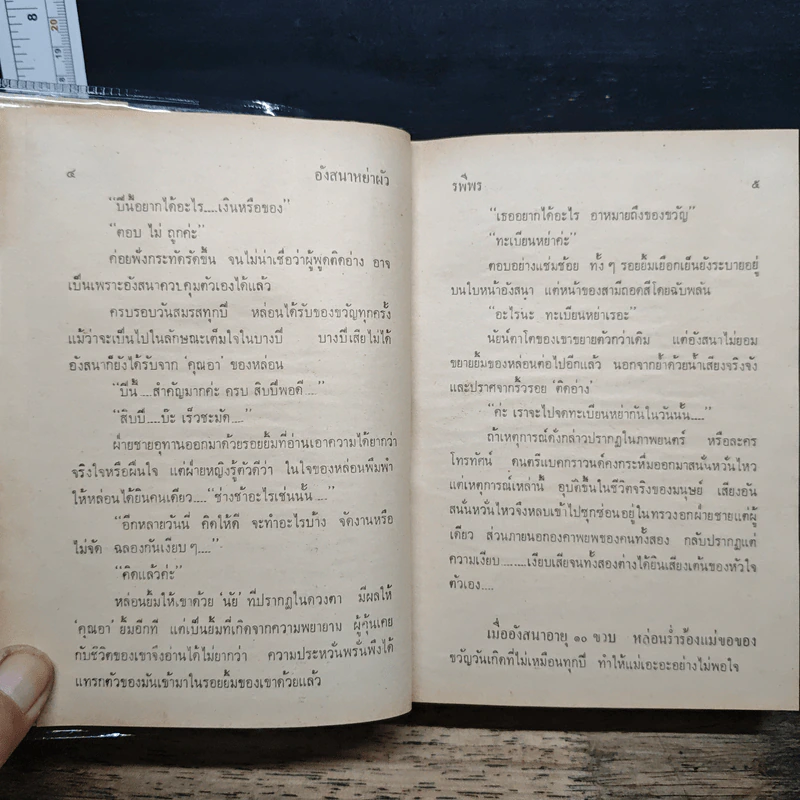 8
20
19
18
๔
อังสนาหย่าผัว
“ปีนี้อยากได้อะไร....เงินหรือของ”
“ตอบ ไม่ ถูกค่ะ”
ค่อยพึ่งกระทัดรัดขึ้น จนไม่น่าเชื่อว่าผู้พูดติดอ่าง อาจ
เป็นเพราะอังสนาควบคุมตัวเองได้แล้ว
ครบรอบวันสมรสทุกปี หล่อนได้รับของขวัญทุกครั้ง
แม้ว่าจะเป็นไปในลักษณะเต็มใจในบางปี บางปีเสียไม่ได้
อังสนาก็ยังได้รับจาก ‘คุณอา’ ของหล่อน
“ปีนี้ ....สำคัญมากค่ะ ครบ สิบปีพอดี....”
“สิบปี.....บ๊ะ เร็วชะมัด....”
ฝ่ายชายอุทานออกมาด้วยรอยยิ้มที่อ่านเอาความได้ยากว่า
จริงใจหรือฝืนใจ แต่ฝ่ายหญิงรู้ตัวดีว่า ในใจของหล่อนพึมพำ
ให้หล่อนได้ยินคนเดียว....“ช่างช้าอะไรเช่นนั้น.....”
“อีกหลายวันนี่ คิดให้ดี จะทำอะไรบ้าง จัดงานหรือ
ไม่จัด ฉลองกันเงียบ ๆ....”
“คิดแล้วค่ะ”
หล่อนยิ้มให้เขาด้วย ‘นัย’ ที่ปรากฏในดวงตา มีผลให้
‘คุณอา’ ยิ้มอีกที แต่เป็นยิ้มที่เกิดจากความพยายาม ผู้คุ้นเคย
กับชีวิตของเขาจึงอ่านได้ไม่ยากว่า ความประหวั่นพรั่นพึงได้
แทรกตัวของมันเข้ามาในรอยยิ้มของเขาด้วยแล้ว
รพีพร
๕
“เธออยากได้อะไร อาหมายถึงของขวัญ”
“ทะเบียนหย่าค่ะ”
ตอบอย่างแช่มช้อย ทั้ง ๆ รอยยิ้มเยือกเย็นยังระบายอยู่
บนใบหน้าอังสนา แต่หน้าของสามีถอดสีโดยฉับพลัน
“อะไรนะ ทะเบียนหย่าเรอะ”
นัยน์ตาโตของเขาขยายตัวกว่าเดิม แต่อังสนาไม่ยอม
ขยายยิ้มของหล่อนต่อไปอีกแล้ว นอกจากย้ำด้วยน้ำเสียงจริงจัง
และปราศจากริ้วรอย ‘ติดอ่าง’
“ค่ะ เราจะไปจดทะเบียนหย่ากันในวันนั้น....”
ถ้าเหตุการณ์ดังกล่าวปรากฏในภาพยนตร์ หรือละคร
โทรทัศน์ ดนตรีแบคกราวนด์คงกระหึ่มออกมาสนั่นหวั่นไหว
แต่เหตุการณ์เหล่านี้ อุบัติขึ้นในชีวิตจริงของมนุษย์ เสียงอัน
สนั่นหวั่นไหวจึงหลบเข้าไปซุกซ่อนอยู่ในทรวงอกฝ่ายชายแต่ผู้
เดียว ส่วนภายนอกองคาพยพของคนทั้งสอง กลับปรากฏแต่
ความเงียบ........เงียบเสียจนทั้งสองต่างได้ยินเสียงเต้นของหัวใจ
ตัวเอง....
เมื่ออังสนาอายุ ๑๐ ขวบ หล่อนร่ำร้องแม่ขอของ
ขวัญวันเกิดที่ไม่เหมือนทุกปี ทำให้แม่เอะอะอย่างไม่พอใจ